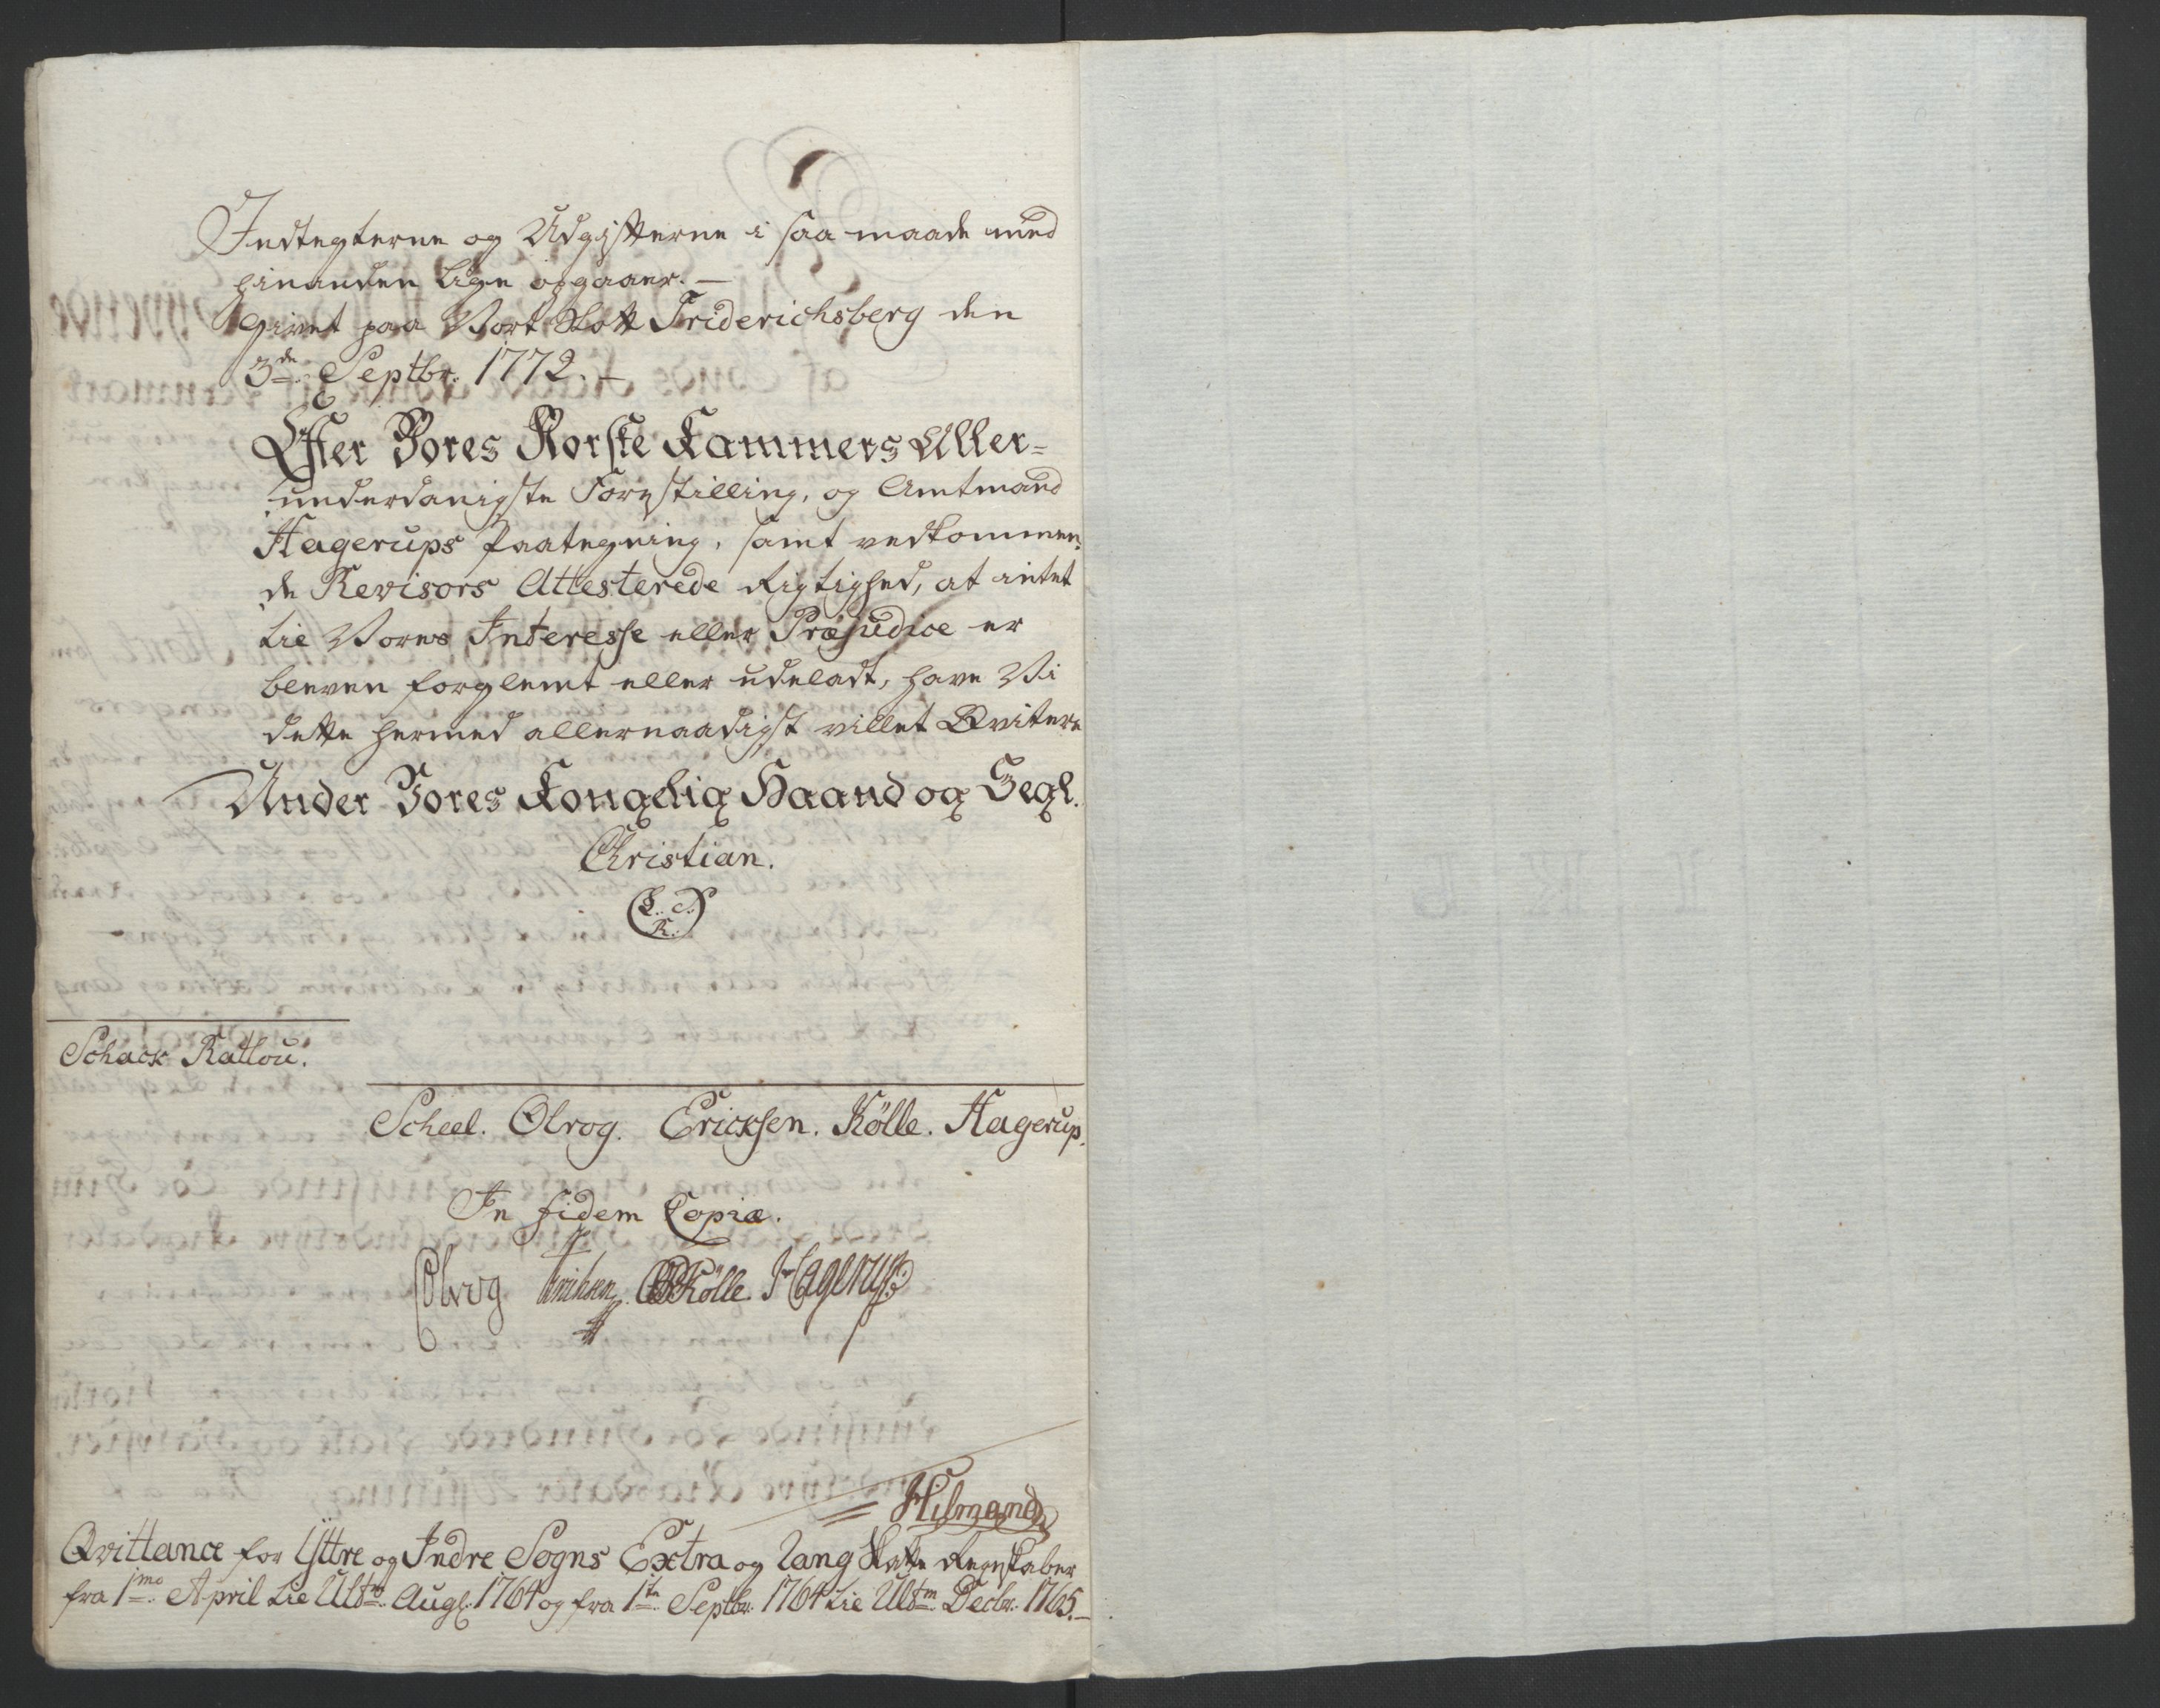 Indtegterne og Udgifterne i saa maade med
hinanden lige opgaaer. —
Givet paa Vort Slott Friderichsberg den
3de Septbr. 1772. —
Efter Vores Norske Kammers Aller=
underdanigste Forestilling, og Amtmand
Hagerups Paategning, samt vedkommen=
de Revisors Attesterede Rigtighed, at intet
tie Vores Interesse eller Præjudice er
bleven forglemt eller udeladt, have Vi
dette hermed allernaadigst villet Qvitere
Under Vores Kongelig Haand og Segl.
Christian.
L. S.
R.
Schack Rattou.
Scheel. Olrog. Ericksen. Kölle. Hagerup.
In fidem Copiæ.
Olrog Erichsen Kölle Hagerup
Hilmand
Qvittance for Yttre og Indre Sogns Extra og Lang Skatte Regnskaber
fra 1mo April tie Ultm. Augs. 1764 og fra 1te Septbr. 1764 tie Ultm Decbr. 1765. —